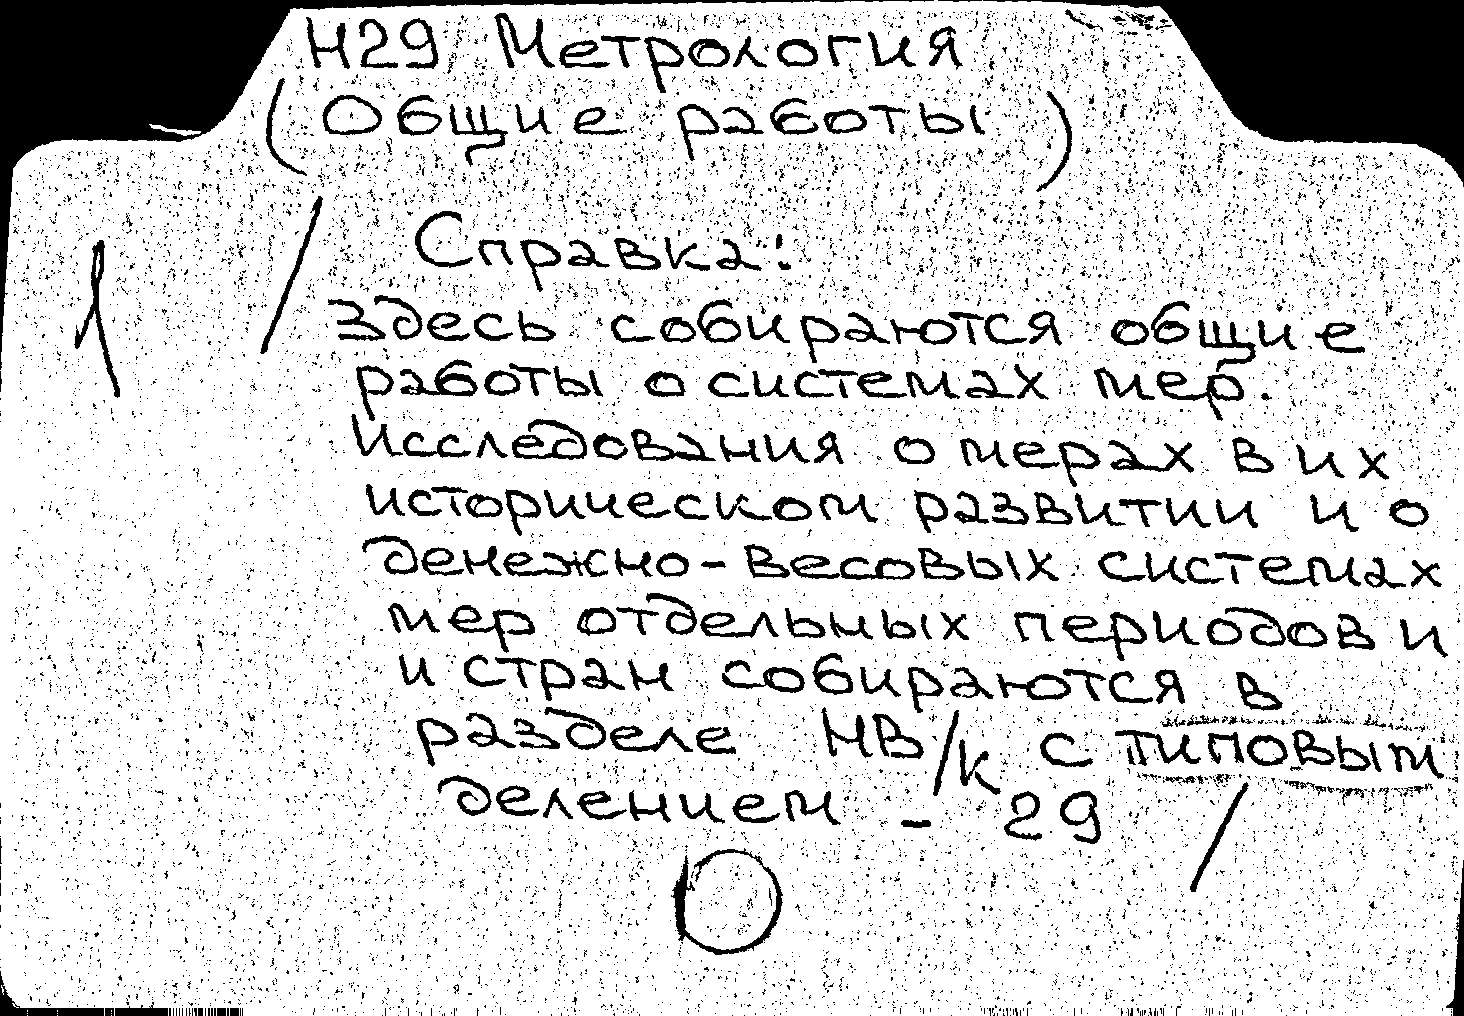 Н29 Метрология
(Общие работы)
/ Справка:
Здесь собираются общие
работы о системах мер.
Исследования о мерах в их
историческом развитии и о
денежно-весовых системах
мер отдельных периодов и
и стран собираются в
разделе НВ/к с типовым
делением - 29 /